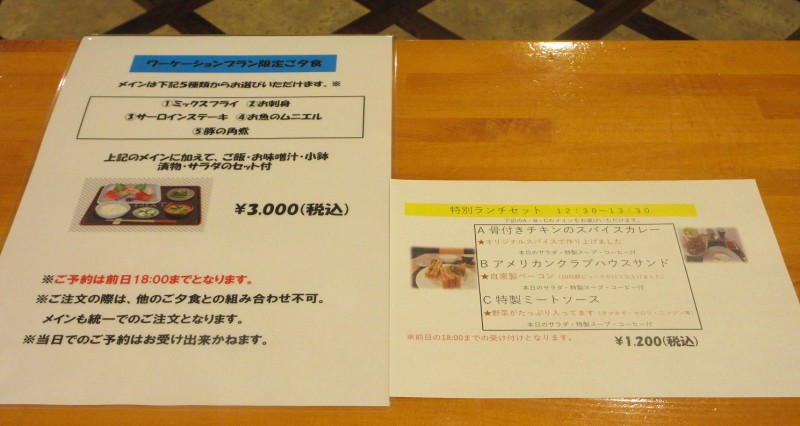 ワーケーションプラン限定ご夕食
メインは下記5種類からお選びいただけます。※
①ミックスフライ ②お刺身
③サーロインステーキ ④お魚のムニエル
⑤豚の角煮
上記のメインに加えて、ご飯・お味噌汁・小鉢
漬物・サラダのセット付
¥3.000(税込)
※ご予約は前日18:00までとなります。
※ご注文の際は、他のご夕食との組み合わせ不可。
メインも統一でのご注文となります。
※当日でのご予約はお受け出来かねます。
特別ランチセット 12:30~13:30
下記のA・B・Cのメインをお選びいただけます。
A 骨付きチキンのスパイスカレー
★オリジナルスパイスで作り上げました
本日のサラダ・特製スープ・コーヒー付
B アメリカンクラブハウスサンド
★自家製ベーコン
本日のサラダ・特製スープ・コーヒー付
C 特製ミートソース
★野菜がたっぷり入ってます
本日のサラダ・特製スープ・コーヒー付
※前日の18:00までの受け付けとなります。
¥1.200(税込)